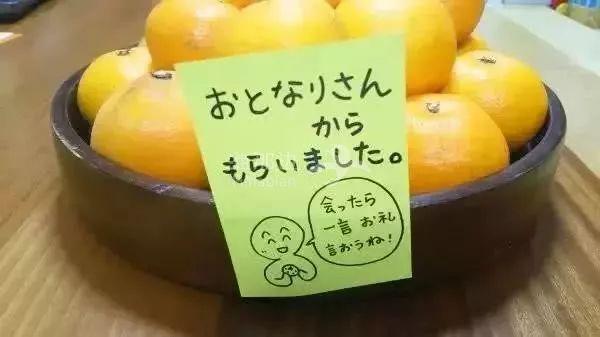 おとなりさん
から
もらいました。
会ったら
一言 お礼
言おうね!